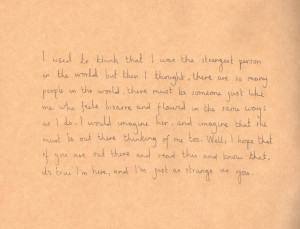 I used to think that I was the strangest person
in the world but then I thought, there are so many
people in the world, there must be someone just like
me who feels bizarre and flawed in the same ways
as I do. I would imagine her, and imagine that she
must be out there thinking of me too. Well, I hope that
if you are out there and read this and know that,
it's true I'm here, and I'm just as strange as you.